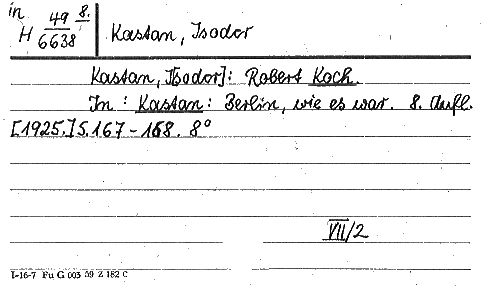 in
H 49 8. / 6638
Kastan, Isodor
Kastan, I[sodor]: Robert Koch.
In: Kastan: Berlin, wie es war. 8. Aufl.
[1925.] S. 167-168. 8°
VII/2
I-16-7 Fu G 003 59 Z 182 C